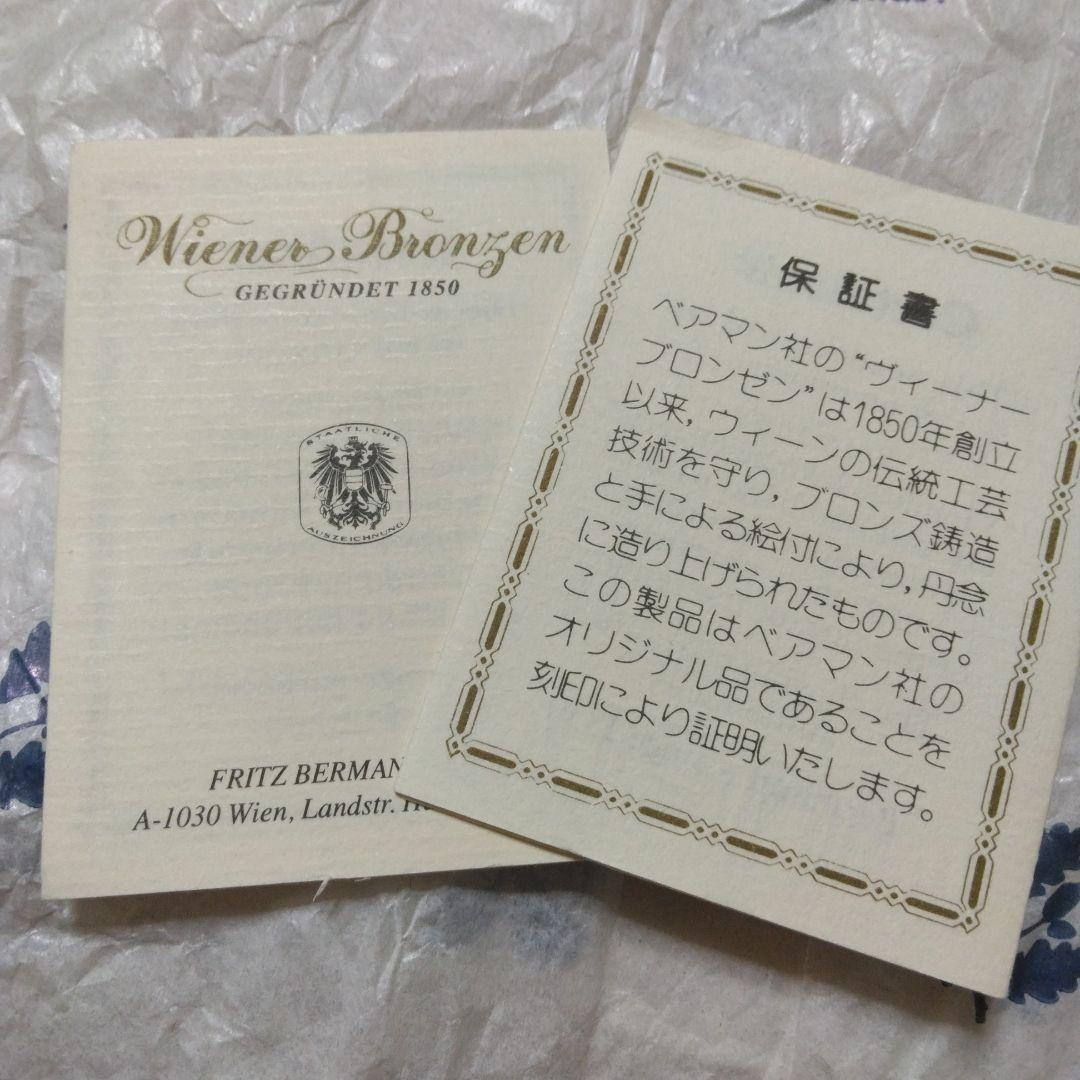 Wiener Bronzen
GEGRÜNDET 1850
STAATLICHE
AUSZEICHNUNG
FRITZ BERMAN
A-1030 Wien, Landstr.
保証書
ベアマン社の“ヴィーナー
ブロンゼン”は1850年創立
以来,ウィーンの伝統工芸
技術を守り,ブロンズ鋳造
と手による絵付により,丹念
に造り上げられたものです。
この製品はベアマン社の
オリジナル品であることを
刻印により証明いたします。